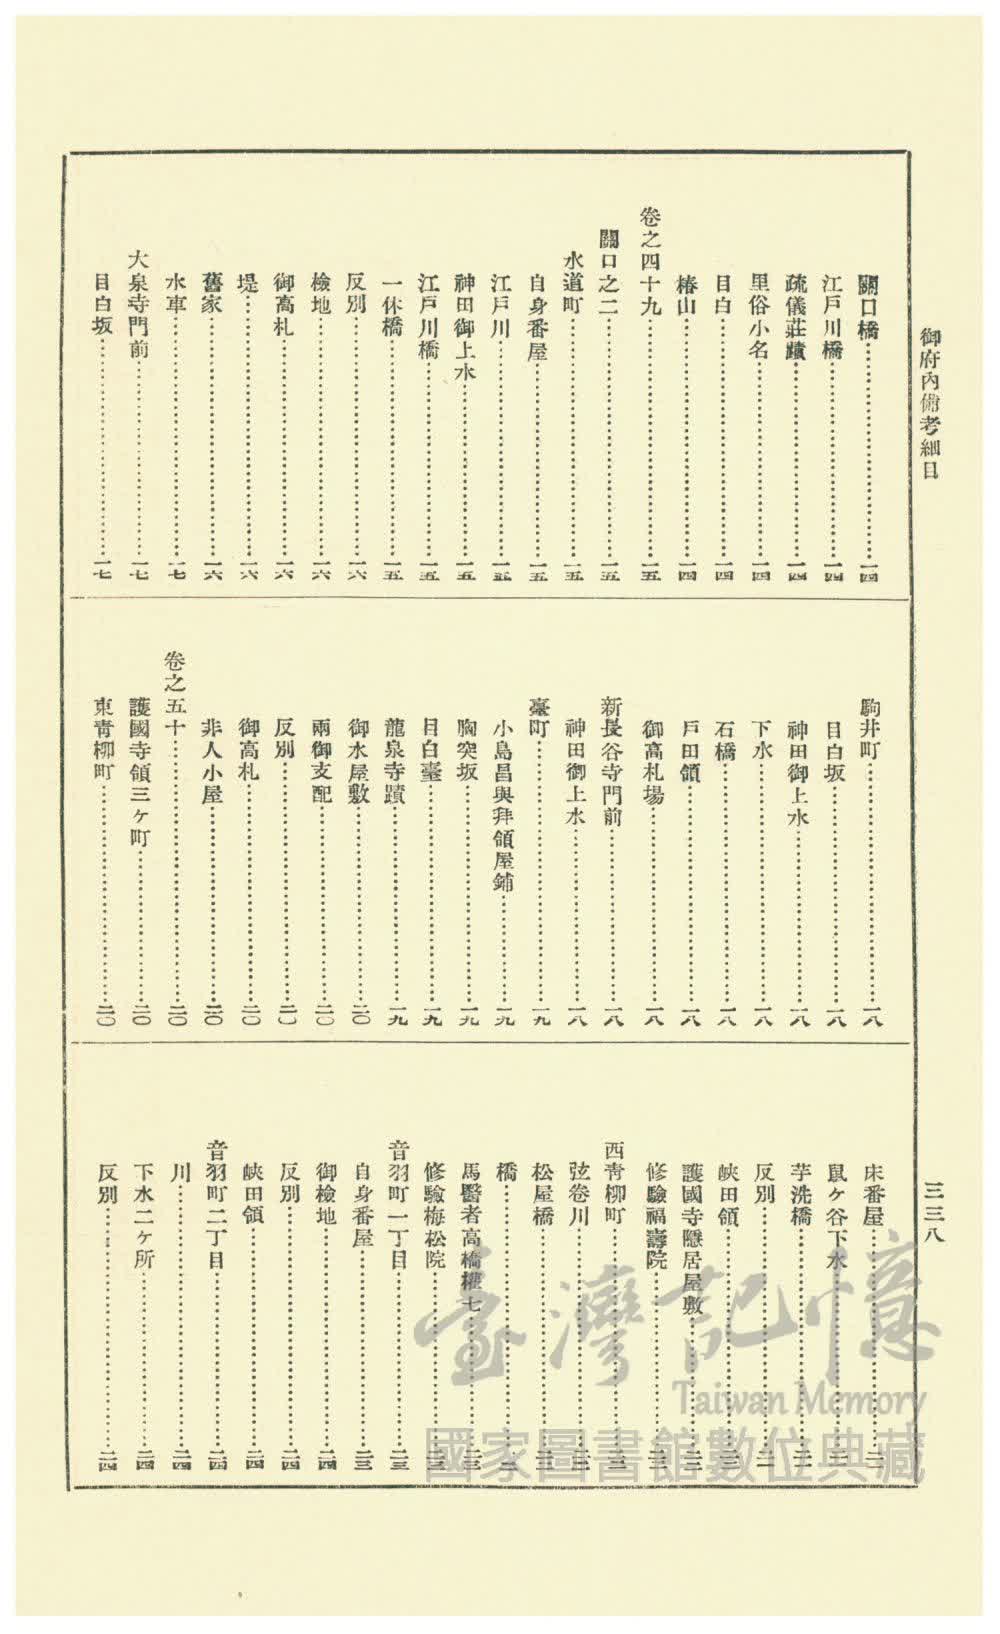 御府內備考細目
三三八
關口橋…一四
江戶川橋…一四
疏儀莊蹟…一四
里俗小名…一四
目白…一四
椿山…一四
卷之四十九…一五
關口之二…一五
水道町…一五
自身番屋…一五
江戶川…一五
神田御上水…一五
江戶川橋…一五
一休橋…一五
反別…一六
檢地…一六
御高札…一六
堤…一六
舊家…一六
水車…一七
大泉寺門前…一七
目白坂…一七
駒井町…一八
目白坂…一八
神田御上水…一八
下水…一八
石橋…一八
戶田領…一八
御高札場…一八
新長谷寺門前…一八
神田御上水…一八
臺町…一九
小島昌與拜領屋鋪…一九
胸突坂…一九
目白臺…一九
龍泉寺蹟…一九
御水屋敷…二〇
兩御支配…二〇
反別…二〇
御高札…二〇
非人小屋…二〇
卷之五十…二〇
護國寺領三ヶ町…二〇
東靑柳町…二〇
床番屋
鼠ヶ谷下水
芋洗橋
反別
峽田領
護國寺隱居屋敷
修驗福壽院
西靑柳町
弦卷川
松屋橋
橋
馬醫者高橋權七
修驗梅松院
音羽町一丁目…二三
自身番屋…二三
御檢地…二四
反別…二四
峽田領…二四
音羽町二丁目…二四
川…二四
下水二ヶ所…二四
反別…二四
臺灣記憶
Taiwan Memory
國家圖書館數位典藏